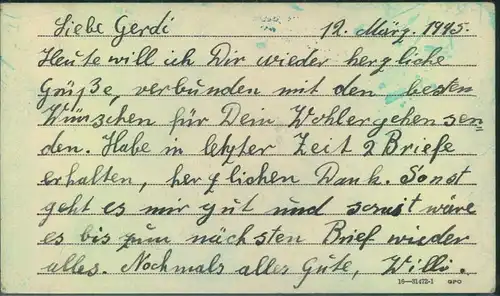 Liebe Gerdi 12. März. 1945.
Heute will ich Dir wieder herzliche
Grüße, verbunden mit den besten
Wünschen für Dein Wohlergehen sen=
den. Habe in letzter Zeit 2 Briefe
erhalten, herzlichen Dank. Sonst
geht es mir gut und somit wäre
es bis zum nächsten Brief wieder
alles. Nochmals alles Gute, Willi.
16—31472-1 GPO